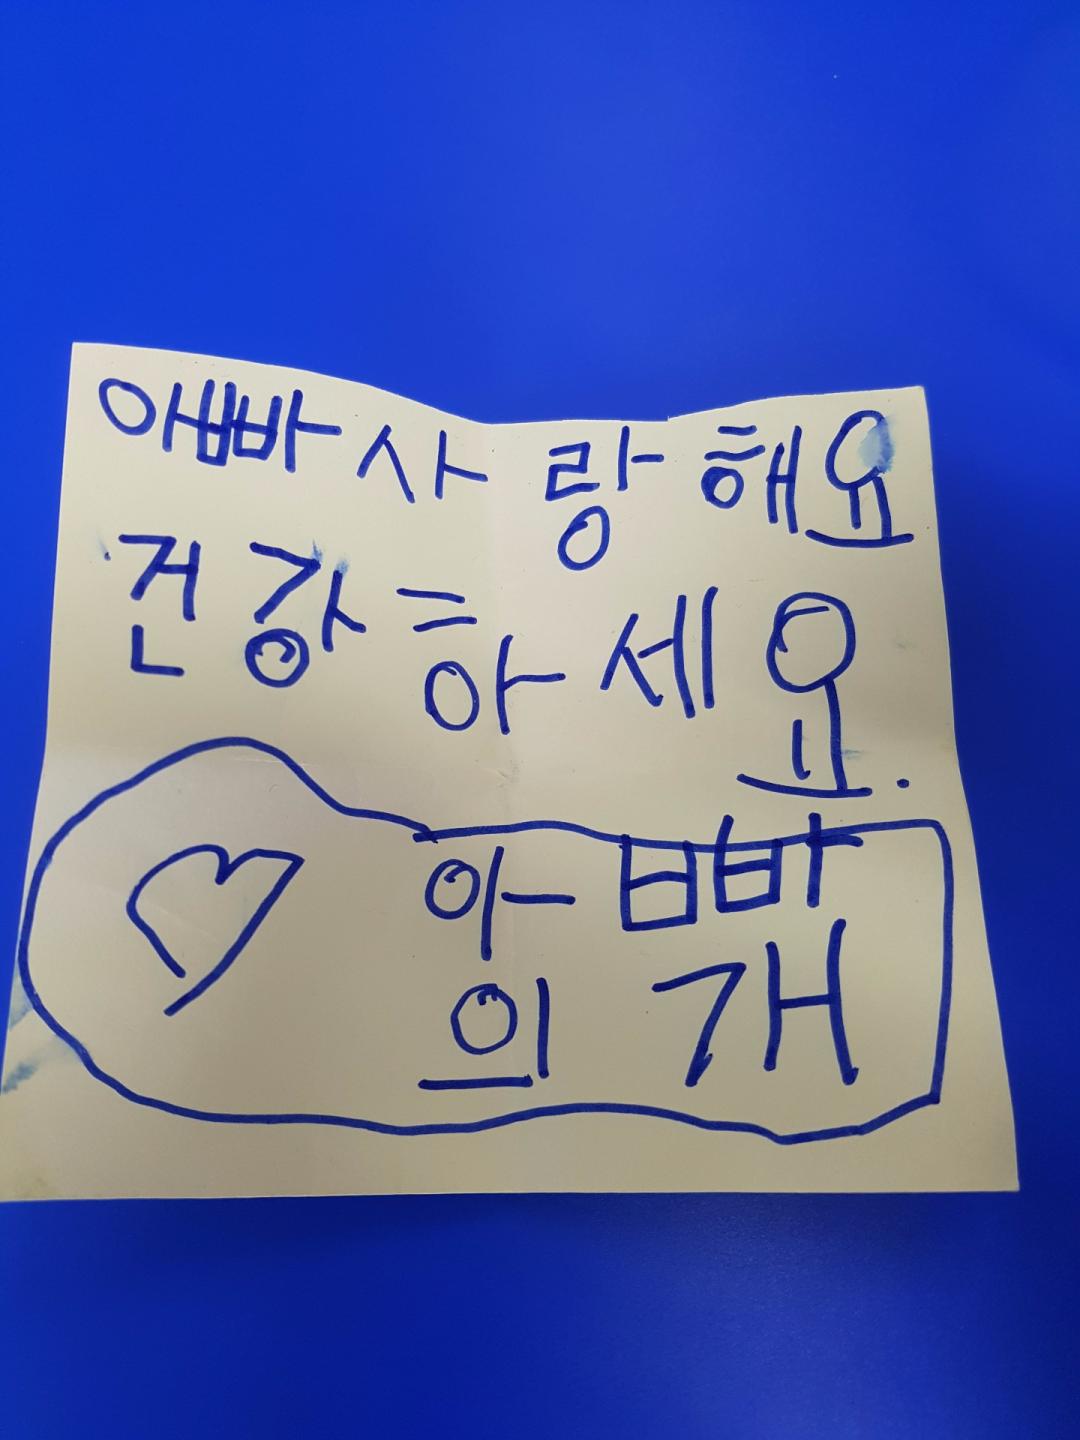 아빠사랑해요
건강하세요.
아빠
의 개